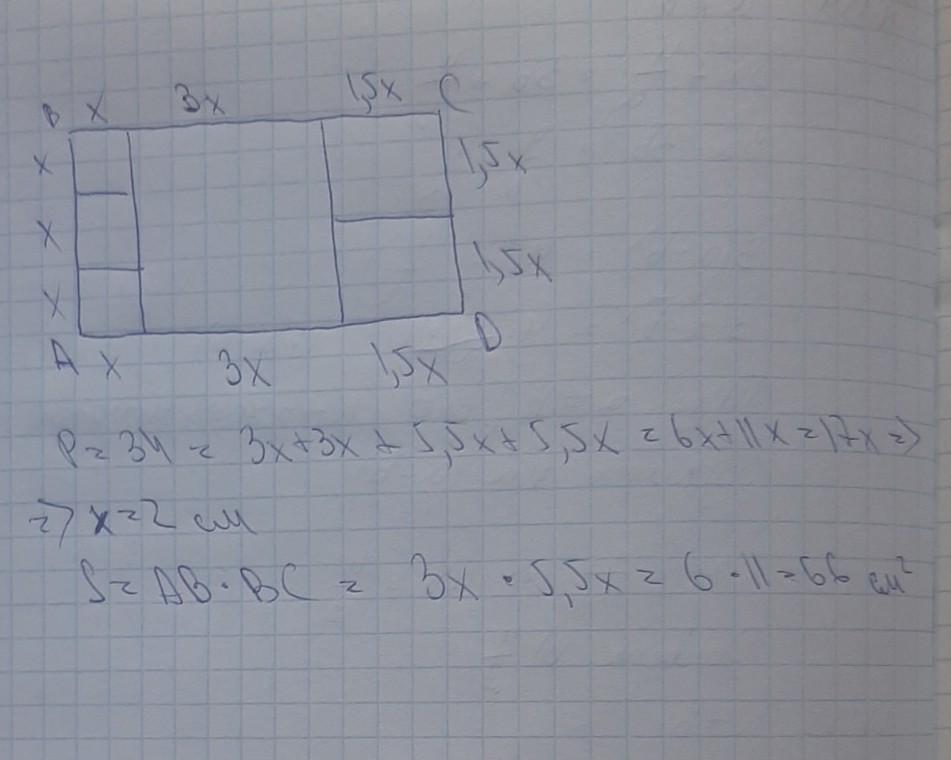 B x 3x 1,5x C
x 1,5x
x
1,5x
x
A x 3x 1,5x D
P = 34 = 3x+3x + 5,5x+5,5x = 6x+11x=17x =>
=> x=2 см
S = AB·BC = 3x · 5,5x = 6·11=66 см²